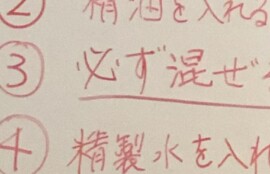 ② 精油を入れる
③ 必ず混ぜ
④ 精製水を入れ